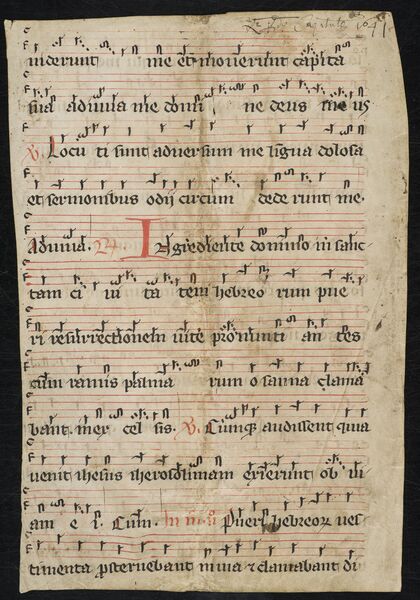 viderunt me et moverunt capita
sua adiuva me domine deus meus
V. Locuti sunt adversum me ligua dolosa
et sermonibus odij circum dederunt me.
Adiuva. Ingrediente domino in sanc-
tam civitatem hebreorum pue
ri resurrectionem vite pronuntiantes
cum ramis palmarum osanna clama
bant. in excelsis. V. Cumq audissent quia
venit ihesus iherosolimam exierunt obvi
am ei. Cum. Pueri hebreorz ves
timenta psternebant in via & clamabant di